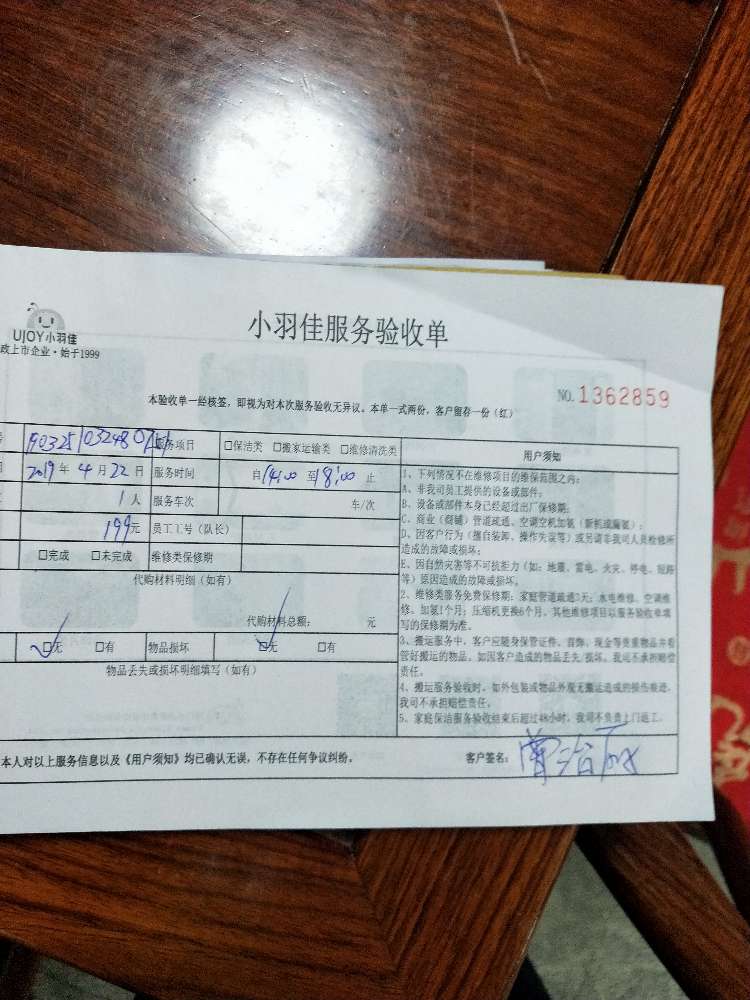 UJOY小羽佳
政上市企业·始于1999
小羽佳服务验收单
本验收单一经核签，即视为对本次服务验收无异议。本单一式两份，客户留存一份（红）
NO.1362859
服务项目 □保洁类 □搬家运输类 □维修清洗类
2019年4月22日 服务时间 自14:00至18:00止
1人 服务车次 车/次
199元 员工工号（队长）
□完成 □未完成 维修类保修期
代购材料明细（如有）
代购材料总额： 元
□无 □有 物品损坏 □无 □有
物品丢失或损坏明细填写（如有）
用户须知
1、下列情况不在维修项目的维保范围之内：
A、非我司员工提供的设备或部件；
B、设备或部件本身已经超过出厂保修期；
C、商业（商铺）管道疏通、空调空机加氨（新机或漏氨）；
D、因客户行为（擅自装卸、操作失误等）或另请非我司人员检修所
造成的故障或损坏；
E、因自然灾害等不可抗力（如：地震、雷电、火灾、停电、短路
等）原因造成的故障或损坏。
2、维修类服务免费保修期：家庭管道疏通3天；水电维修、空调维
修、加氨1个月；压缩机更换6个月，其他维修项目以服务验收单填
写的保修期为准。
3、搬运服务中，客户应随身保管证件、首饰、现金等贵重物品并看
管好搬运的物品，如因客户造成的物品丢失/损坏，我司不承担赔偿
责任。
4、搬运服务验收时，如外包装或物品外观无搬运造成的损伤痕迹，
我司不承担赔偿责任。
5、家庭保洁服务验收结束后超过48小时，我司不负责上门返工。
本人对以上服务信息以及《用户须知》均已确认无误，不存在任何争议纠纷。
客户签名：